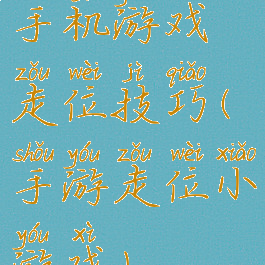 手机游戏
zǒu wèi jì qiǎo
走位技巧(
shǒu yóu zǒu wèi xiǎo
手游走位小
yóu xì
游戏)